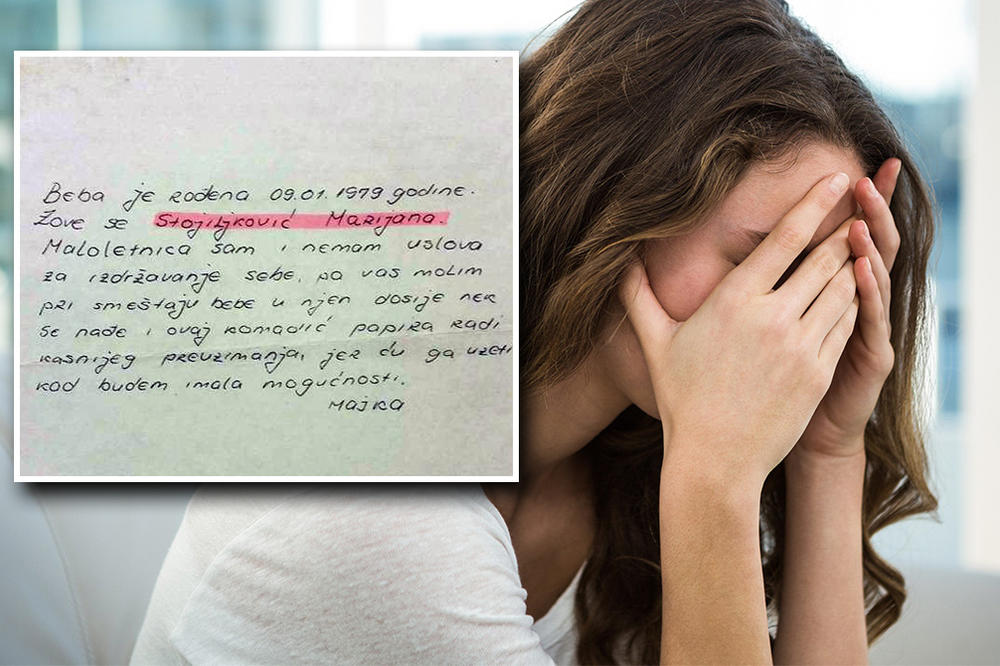 Beba je rođena 09.01.1979 godine.
Zove se Stojiljković Marijana.
Maloletnica sam i nemam uslova
za izdržavanje sebe, pa vas molim
pri smeštaju bebe u njen dosije nek
se nađe i ovaj komadić papira radi
kasnijeg preuzimanja, jer ću ga uzeti
kod budem imala mogućnosti.
Majka